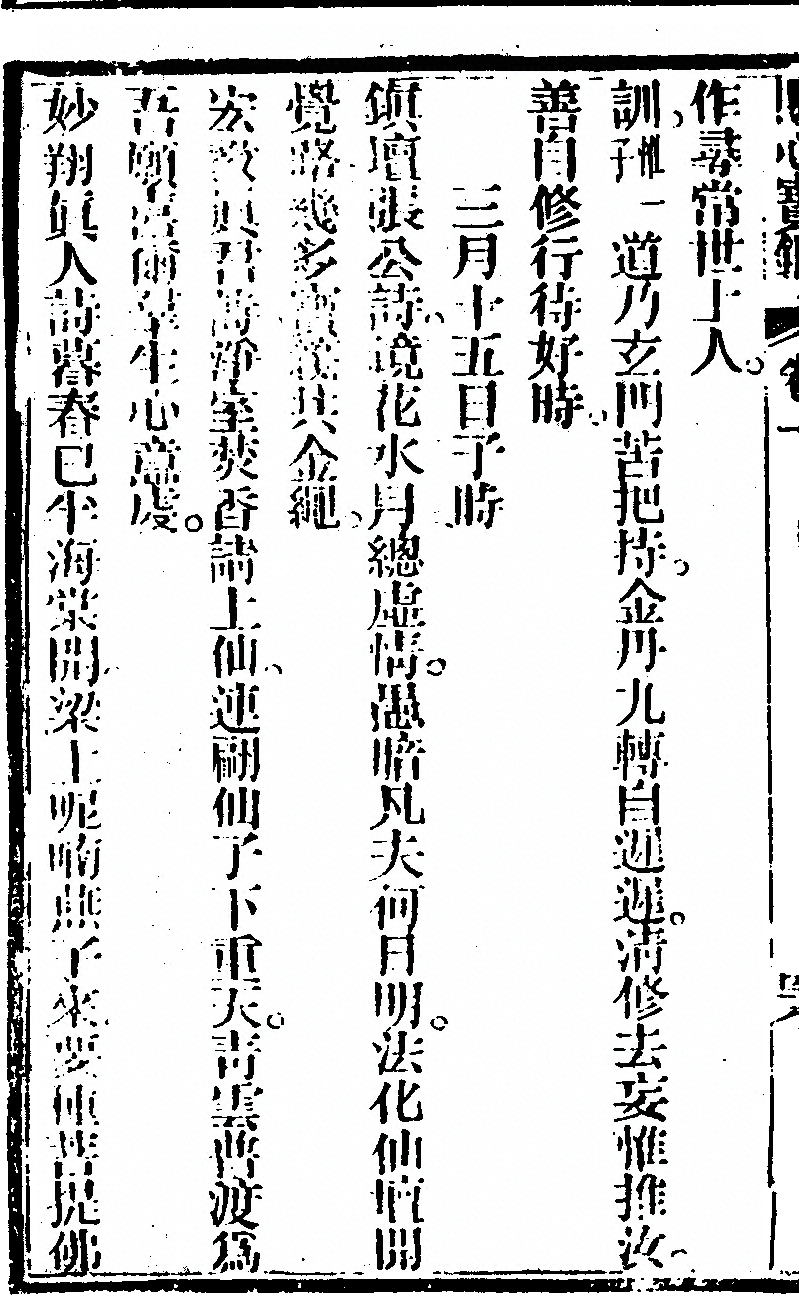 作尋常世上人。
訓惟一子道乃玄門苦把持。金丹九轉自遲遲。清修去妄惟推汝。
善自修行待好時。
三月十五日子時
鎮壇張公詩。鏡花水月總虛情。愚暗凡夫何日明。法化仙壇開
覺路。幾多 共金繩。
宏教真君詩淨室焚香請上仙。連翩仙子下重天。青雲普渡爲
吾願。 爾 生心 虔。
妙翔真人詩暮春已半海棠開。梁上呢喃燕子來。要種菩提佛